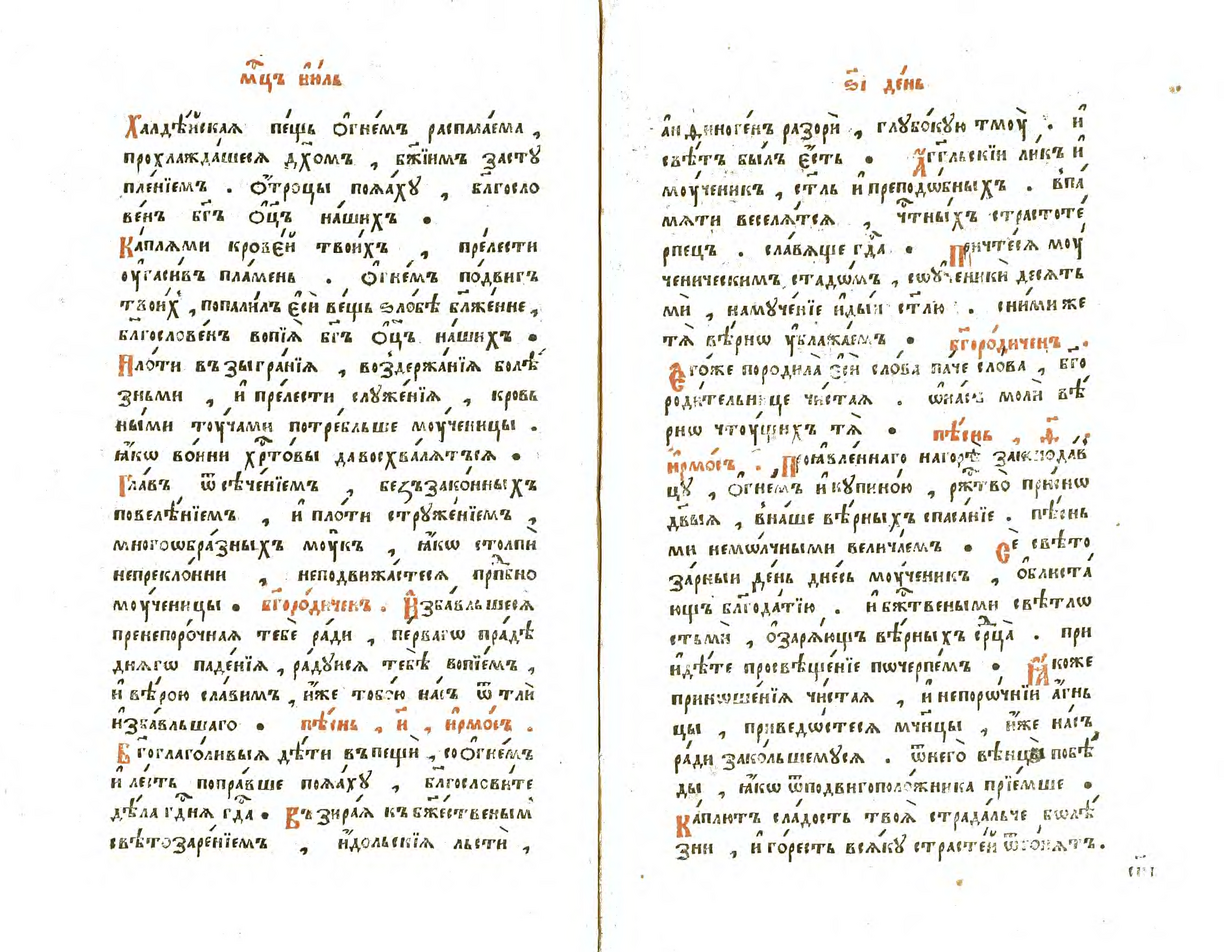 мⷭ҇цъ ию́ль
Халдѣ́йская пе́щь ѻ҆гне́мъ распала́ема ,
прохлажда́шеся дх҃омъ , бж҃іимъ засту
пле́ніемъ . ѻ҆́троцы поѧ́ху , бл҃госло
ве́нъ бг҃ъ ѻ҆ц҃ъ на́шихъ .
Ка́плями крове́й твои́хъ , пре́лести
оу҆гаси́въ пла́мень . ѻ҆гне́мъ по́двигъ
твои́хъ , попали́лъ є҆сѝ ве́щь ѕло́бѣ бл҃же́нне ,
благослове́нъ вопїѧ̀ бг҃ъ ѻ҆ц҃ъ на́шихъ .
Пло́ти възыгра́нїѧ , воздержа́нїѧ болѣ́
зньми , и҆ пре́лести служе́нїѧ , кровь
ными тоу́чами потребльше моу́ченицы .
ꙗ҆́кѡ во́ини хрⷭ҇то́вы да восхвалѧ́тъся .
Гла́въ ѿ сѣче́нїемъ , беззако́нныхъ
повелѣ́нїемъ , и҆ пло́ти струже́нїемъ ,
многоѡбра́зныхъ моу́къ , ꙗ҆́кѡ столпѝ
непрекло́нни , неподви́жастеся прпⷣбно
моу́ченицы . бг҃оро́диченъ . И҆зба́вльшеся
пренепоро́чная тебѐ ра́ди , пе́рвагѡ пра́дѣ
днягѡ паде́нїѧ , ра́дуися тебѣ̀ вопїе́мъ ,
и҆ вѣ́рою сла́вимъ , и҆́же тобо́ю на́съ ѿ тлѝ
и҆зба́вльшаго . пѣ́снь , и҃ , і҆рмо́съ .
Бг҃оглаго́ливыя дѣ́ти въ пещѝ , со ѻ҆гне́мъ
и҆ ле́сть попра́вше поѧ́ху , бл҃гослови́те
дѣ́ла гдⷭ҇ня гдⷭ҇а . Възира́я къ бж҃е́ственымъ
свѣтозаре́нїемъ , и҆́дольскїя льсти ,
ѕ҃і де́нь
разорѝ , глубо́кую тмоу̀ . и҆
свѣ́тъ бы́лъ є҆́сть . А҆́гг҃льскїи ли́къ и҆
моу́ченикъ , ст҃ль и҆ преподо́бныхъ . в̾па́
мяти веселѧ́тся , чⷭ҇тны́хъ страстоте́
рпецъ . сла́вяще гдⷭ҇а . Причте́ся моу́
ченическимъ стадо́мъ , сѡу́ченики де́сять
мѝ , на муче́нїе и҆ды́и ст҃лю . с ни́ми же
тѧ̀ вѣ́рнѡ ублажа́емъ . бг҃оро́диченъ .
Є҆го́же породила є҆сѝ сло́ва па́че сло́ва , бг҃о
роди́тельнице чи́стая . ѡ҆ на́съ молѝ вѣ́
рнѡ чтоу́щихъ тѧ̀ . пѣ́снь , ѳ҃ .
і҆рмо́съ . Проявле́ннаго на горѣ̀ законода́в
цу , ѻ҆гне́мъ и҆ купиною , ржⷭ҇тво̀ при́снѡ
дв҃ыя , в̾ на́ше вѣ́рныхъ спасе́нїе . пѣ́снь
ми немо́лчными велича́емъ . Сѐ свѣто
за́рныи де́нь дне́сь моу́ченикъ , ѻ҆блиста́
ющъ бл҃года́тїю . и҆ бж҃твеными свѣ́тлѡ
стьмѝ , ѻ҆заря́ющъ вѣ́рныхъ срⷣца̀ . при
и҆дѣ́те просвѣще́нїе почерпе́мъ . Ꙗ҆́коже
приноше́нїя чи́стая , и҆ непоро́чнїи а҆́гнь
цы , приведо́стеся мч҃нцы , и҆́же на́съ
ра́ди зако́льшемуся . ѿ него̀ вѣнца̀ побѣ́
ды , ꙗ҆́кѡ ѿ подвигополо́жника прїе́мше .
Ка́плютъ сла́дость твоя̀ страда́льче болѣ́
зни , и҆ го́ресть вся́ку страсте́й ѿгоня́тъ .